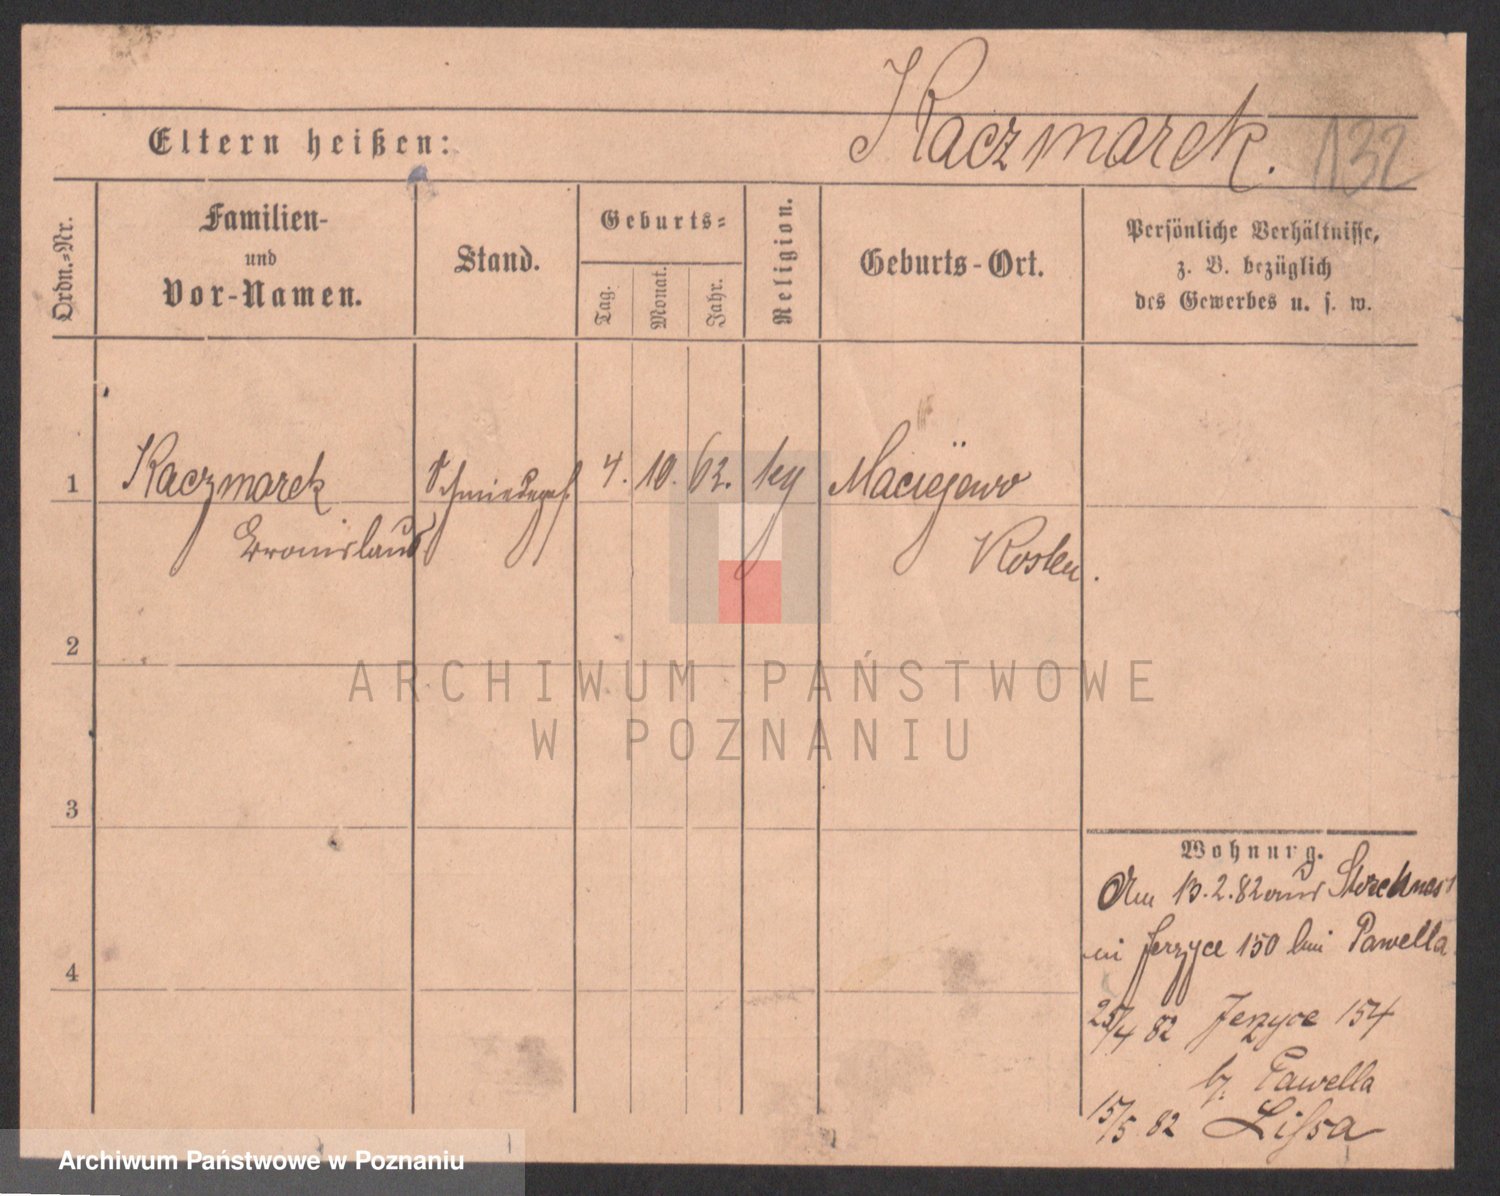 Kaczmarek. 132
Eltern heißen:
Ordn.-Nr.
Familien-
und
Vor-Namen.
Stand.
Geburts-
Tag.
Monat.
Jahr.
Religion.
Geburts-Ort.
Persönliche Verhältnisse,
z. B. bezüglich
des Gewerbes u. s. w.
1 Kaczmarek Schmiedeges. 4. 10. 62. Maciejewo
Bronislaus Kosten.
2
3
4
Wohnung.
Am 13.2.82 aus Storchnest
in Jerzyce 150 bei Pawella
25/4 82 Jerzyce 154
b. Pawella
15/5 82 Lissa
ARCHIWUM PAŃSTWOWE
W POZNANIU
Archiwum Państwowe w Poznaniu